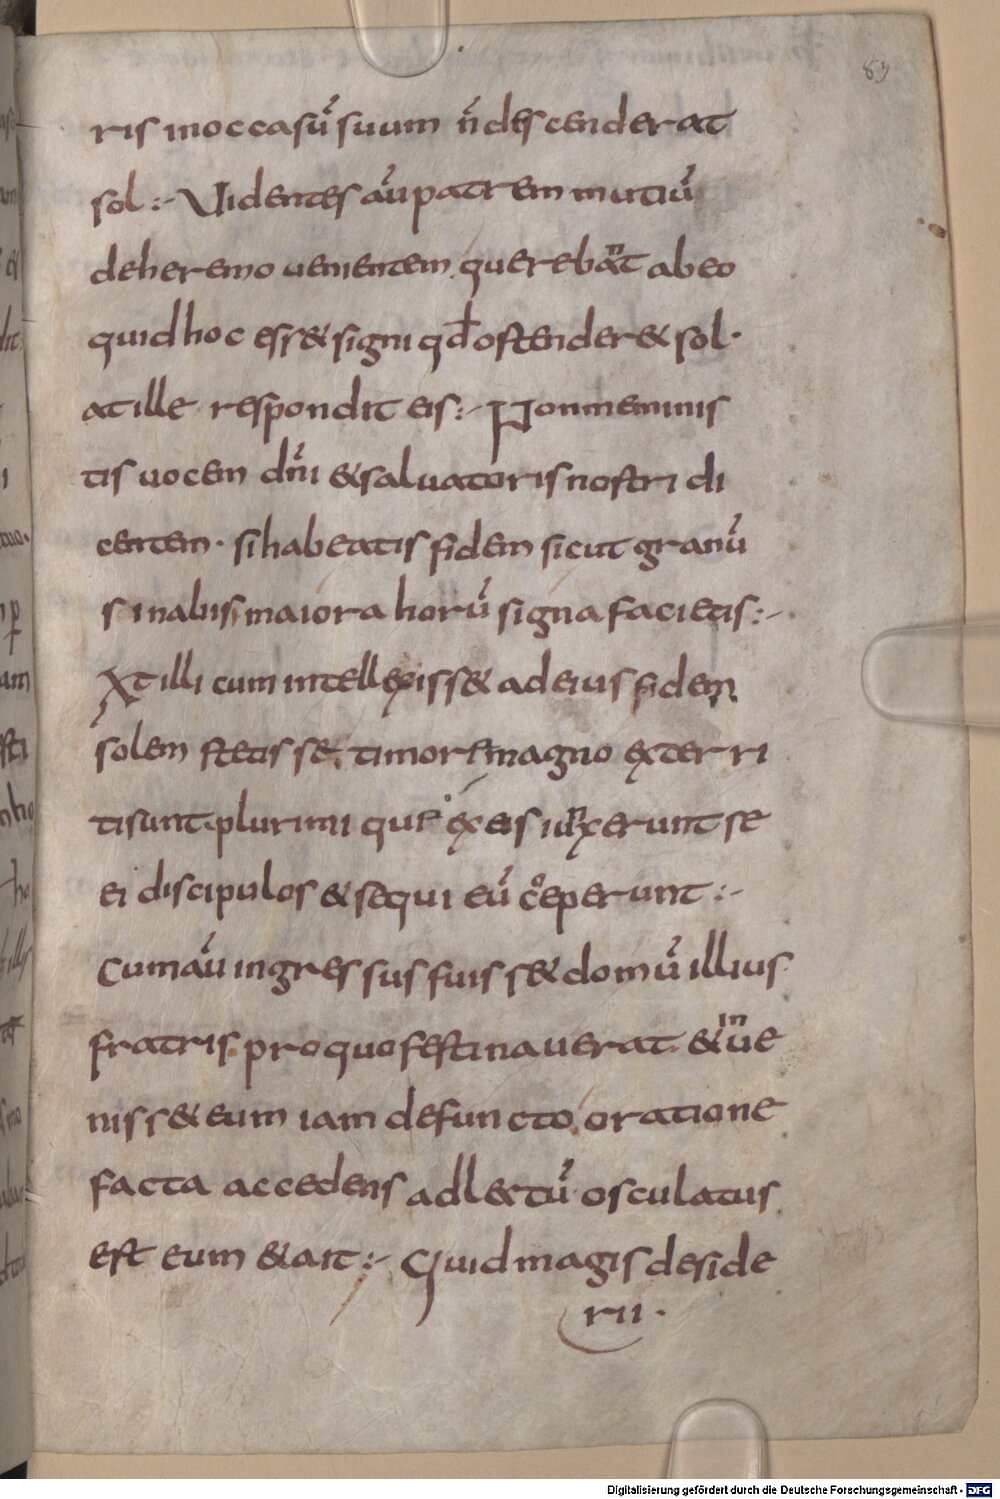 69
ris inoccasū suum n̄ descenderat
sol :- Videntes aū patrem mutiū
deheremo uenientem querebant abeo
quid hoc ess& signi qd̄ ostender& sol·
at ille respondit eis :- Nonmeminis
tis uocem dn̄i &saluatoris nostri di
centem· si habeatis fidem sicut granū
sinabis maiora horū signa facietis :-
At illi cum intellexiss& adeius fidem
solem stetisse, timore magno exterri
ti sunt plurimi qui ex eis iunxerunt se
ei discipulos &sequi eū coeperunt :-
Cumaū ingressus fuiss& domū illius
fratris proquo festinauerat &inue
niss& eum iam defuncto, oratione
facta accedens adlectū osculatus
est eum &ait :- Quid magis deside
rii ·
Digitalisierung gefördert durch die Deutsche Forschungsgemeinschaft - DFG